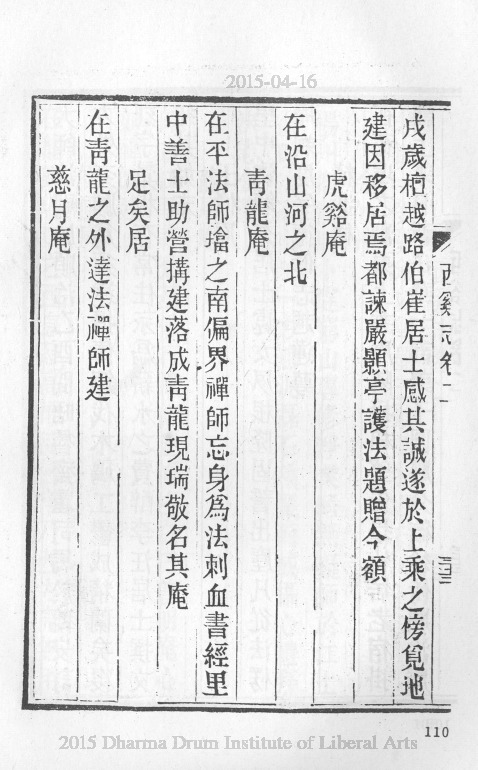 2015-04-16
西谿志卷二
戌歲檀越路伯崔居士感其誠遂於上乘之傍覓地
建因移居焉都諫嚴顥亭護法題贈今額
虎谿庵
在沿山河之北
靑龍庵
在平法師墖之南偏界禪師忘身爲法刺血書經里
中善士助營搆建落成靑龍現瑞敬名其庵
足矣居
在靑龍之外達法禪師建
慈月庵
110
2015 Dharma Drum Institute of Liberal Arts